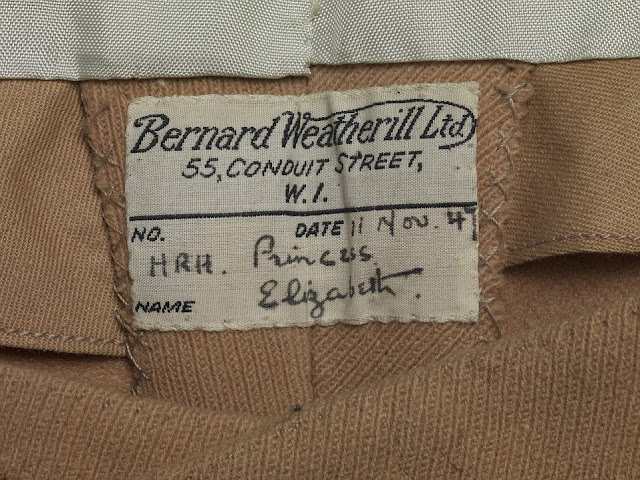 Bernard Weatherill Ltd
55, CONDUIT STREET,
W.1.
NO. DATE 11 Nov. 47
HRH. Princess
Elizabeth.
NAME